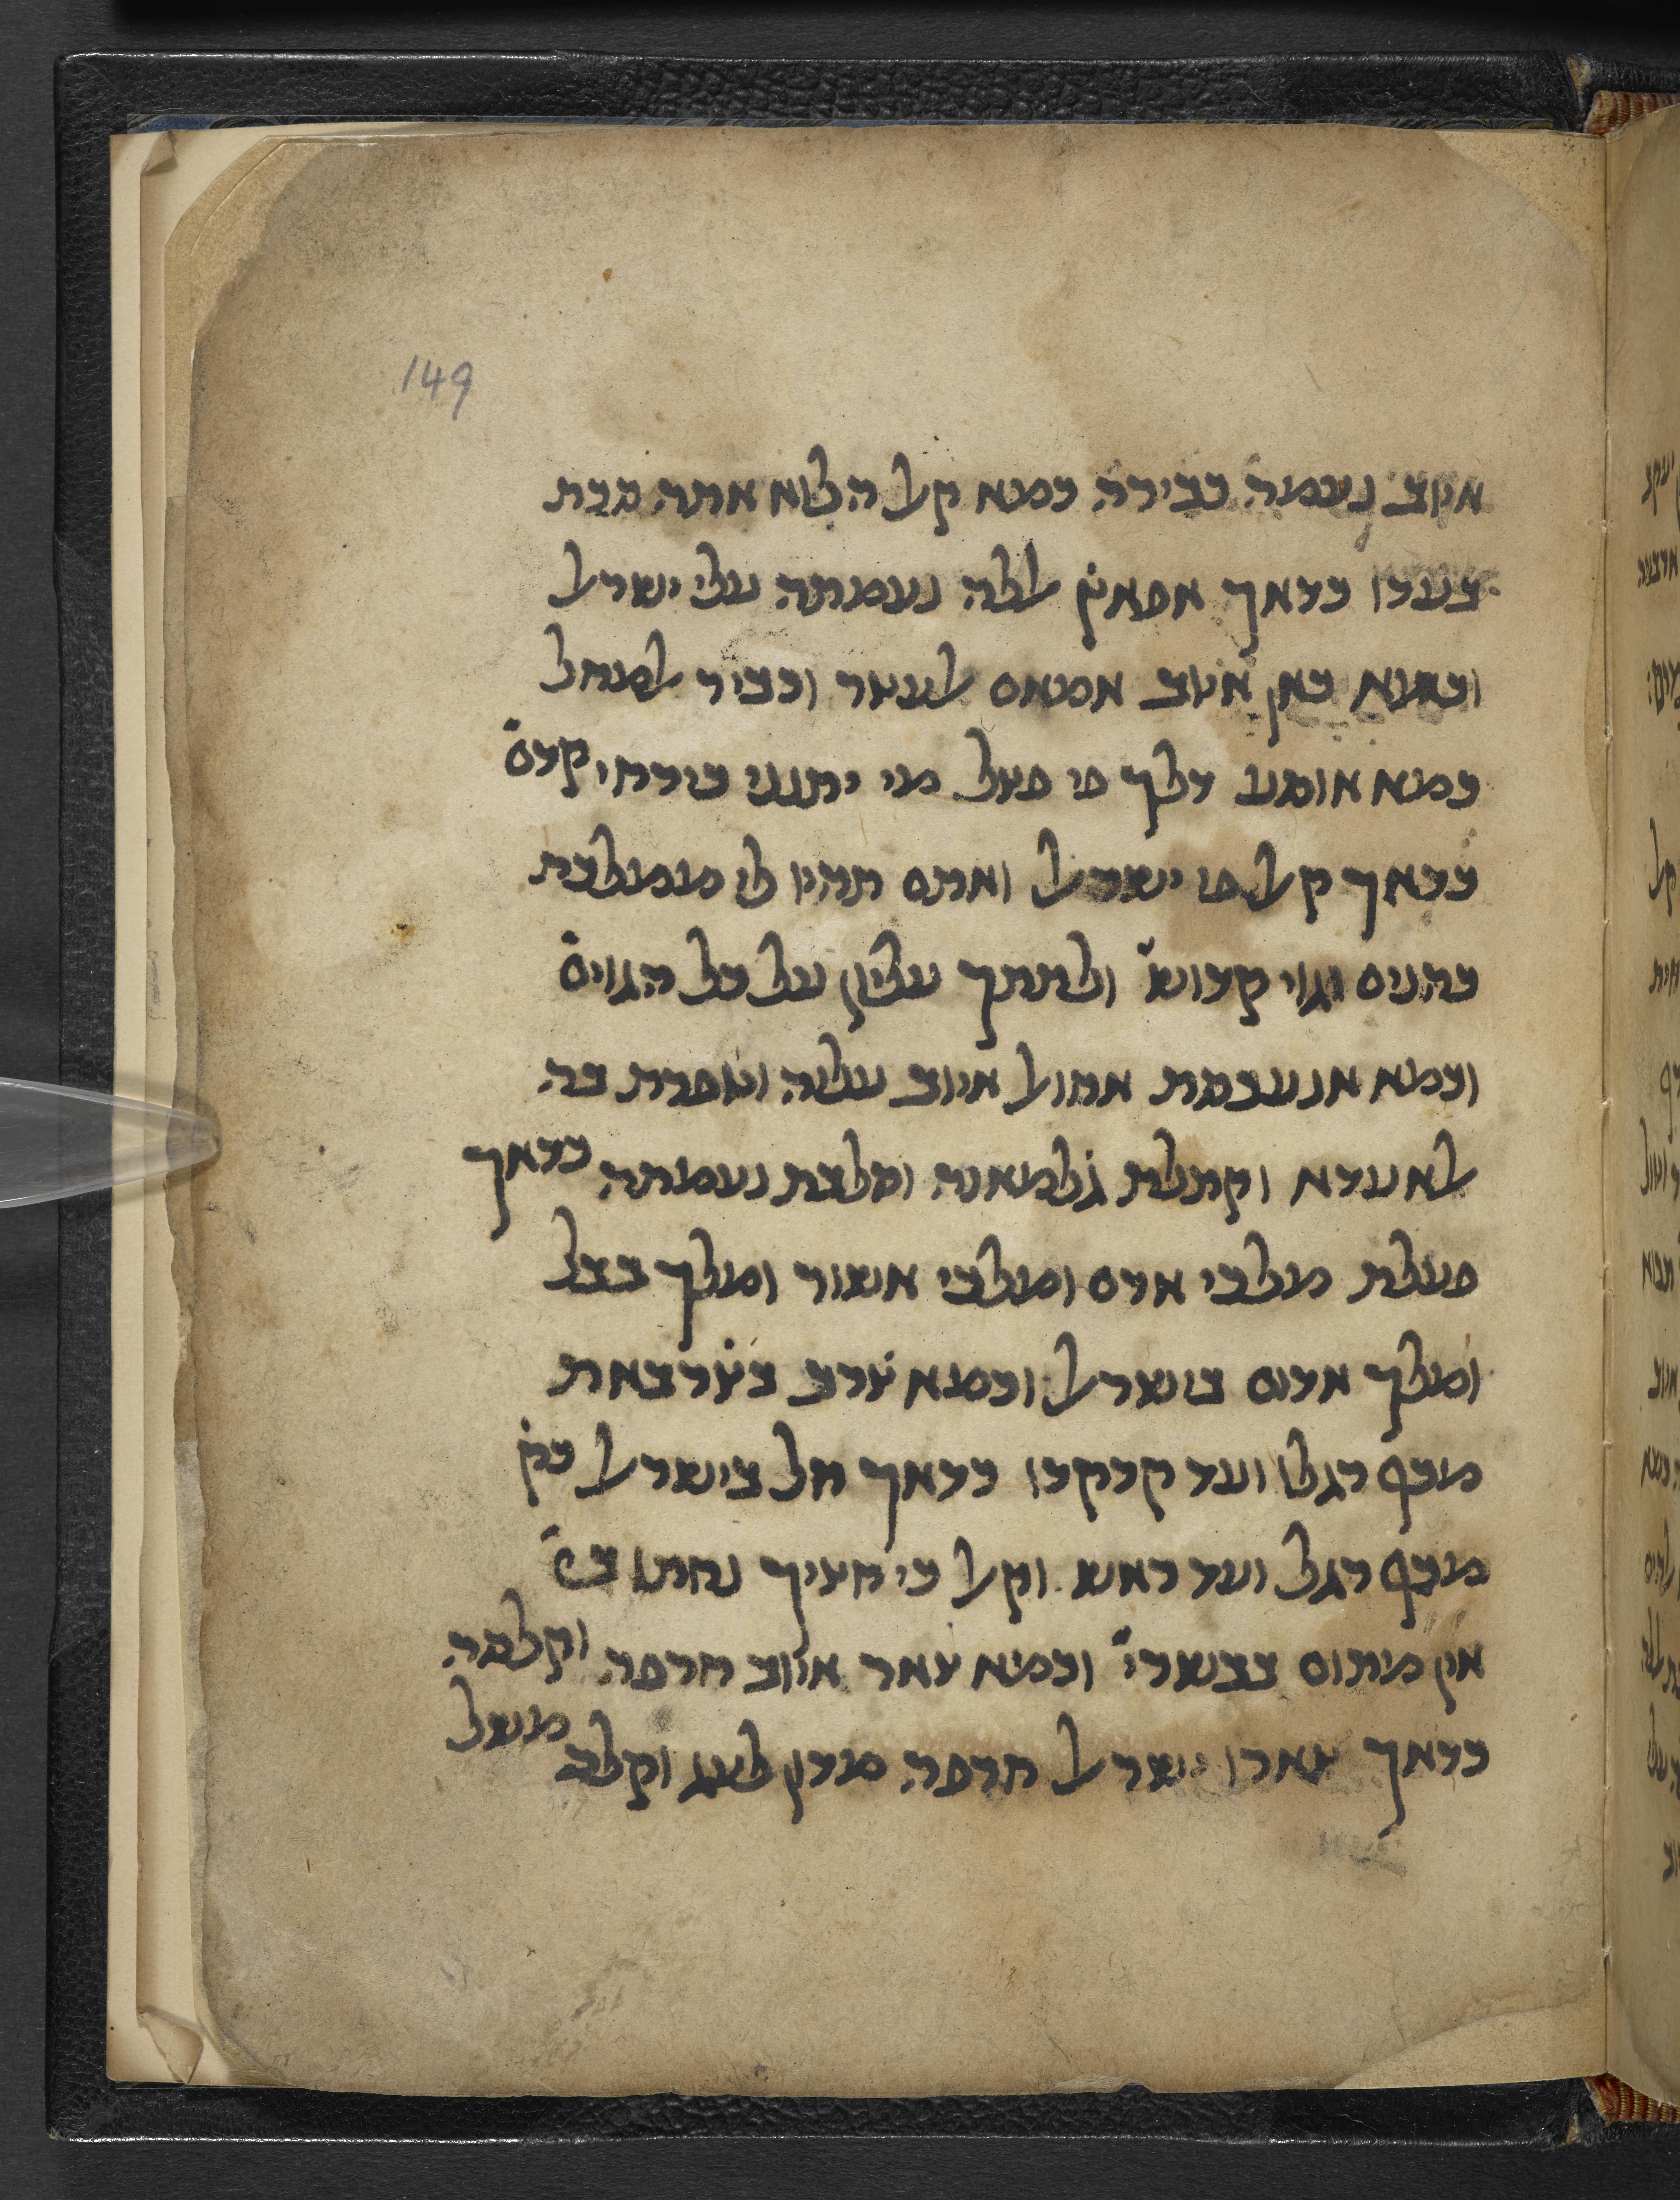 149
איוב נעמה כבירה כמא קאל הלוא אתה סכת
בעדו כדאך אפאץ֗ אללה נעמתה עלי ישראל
וכמא כאן איוב אמאם לעאר וכביר למחל
כמא אוצע דלך פי פצל מי יתנני כירחי קדם
כדאך קאל פי ישראל ואתם תהיו לי ממלכת
כהנים וגוי קדוש ולתתך עליון על כל הגוים
וכמא אנעכסת אחואל איוב עליה וצ֗פרת בה
אלאעדא וקתלת ג֗למאנה וסלבת נעמתה כדאך
פעלת מלכי ארם ומלכי אשור ומלך בבל
ומלך אדום בישראל וכמא צ֗רב בצ֗רבאת
מכף רגלו ועד קדקדו כדאך חל בישראל כק֗
מכף רגל ועד ראש וקאל כי חציך נחתו בי
אין מתום בבשרי וכמא צאר איוב חרפה וקלסה
כדאך צארו ישראל חרפה מדון לעג וקלס משל